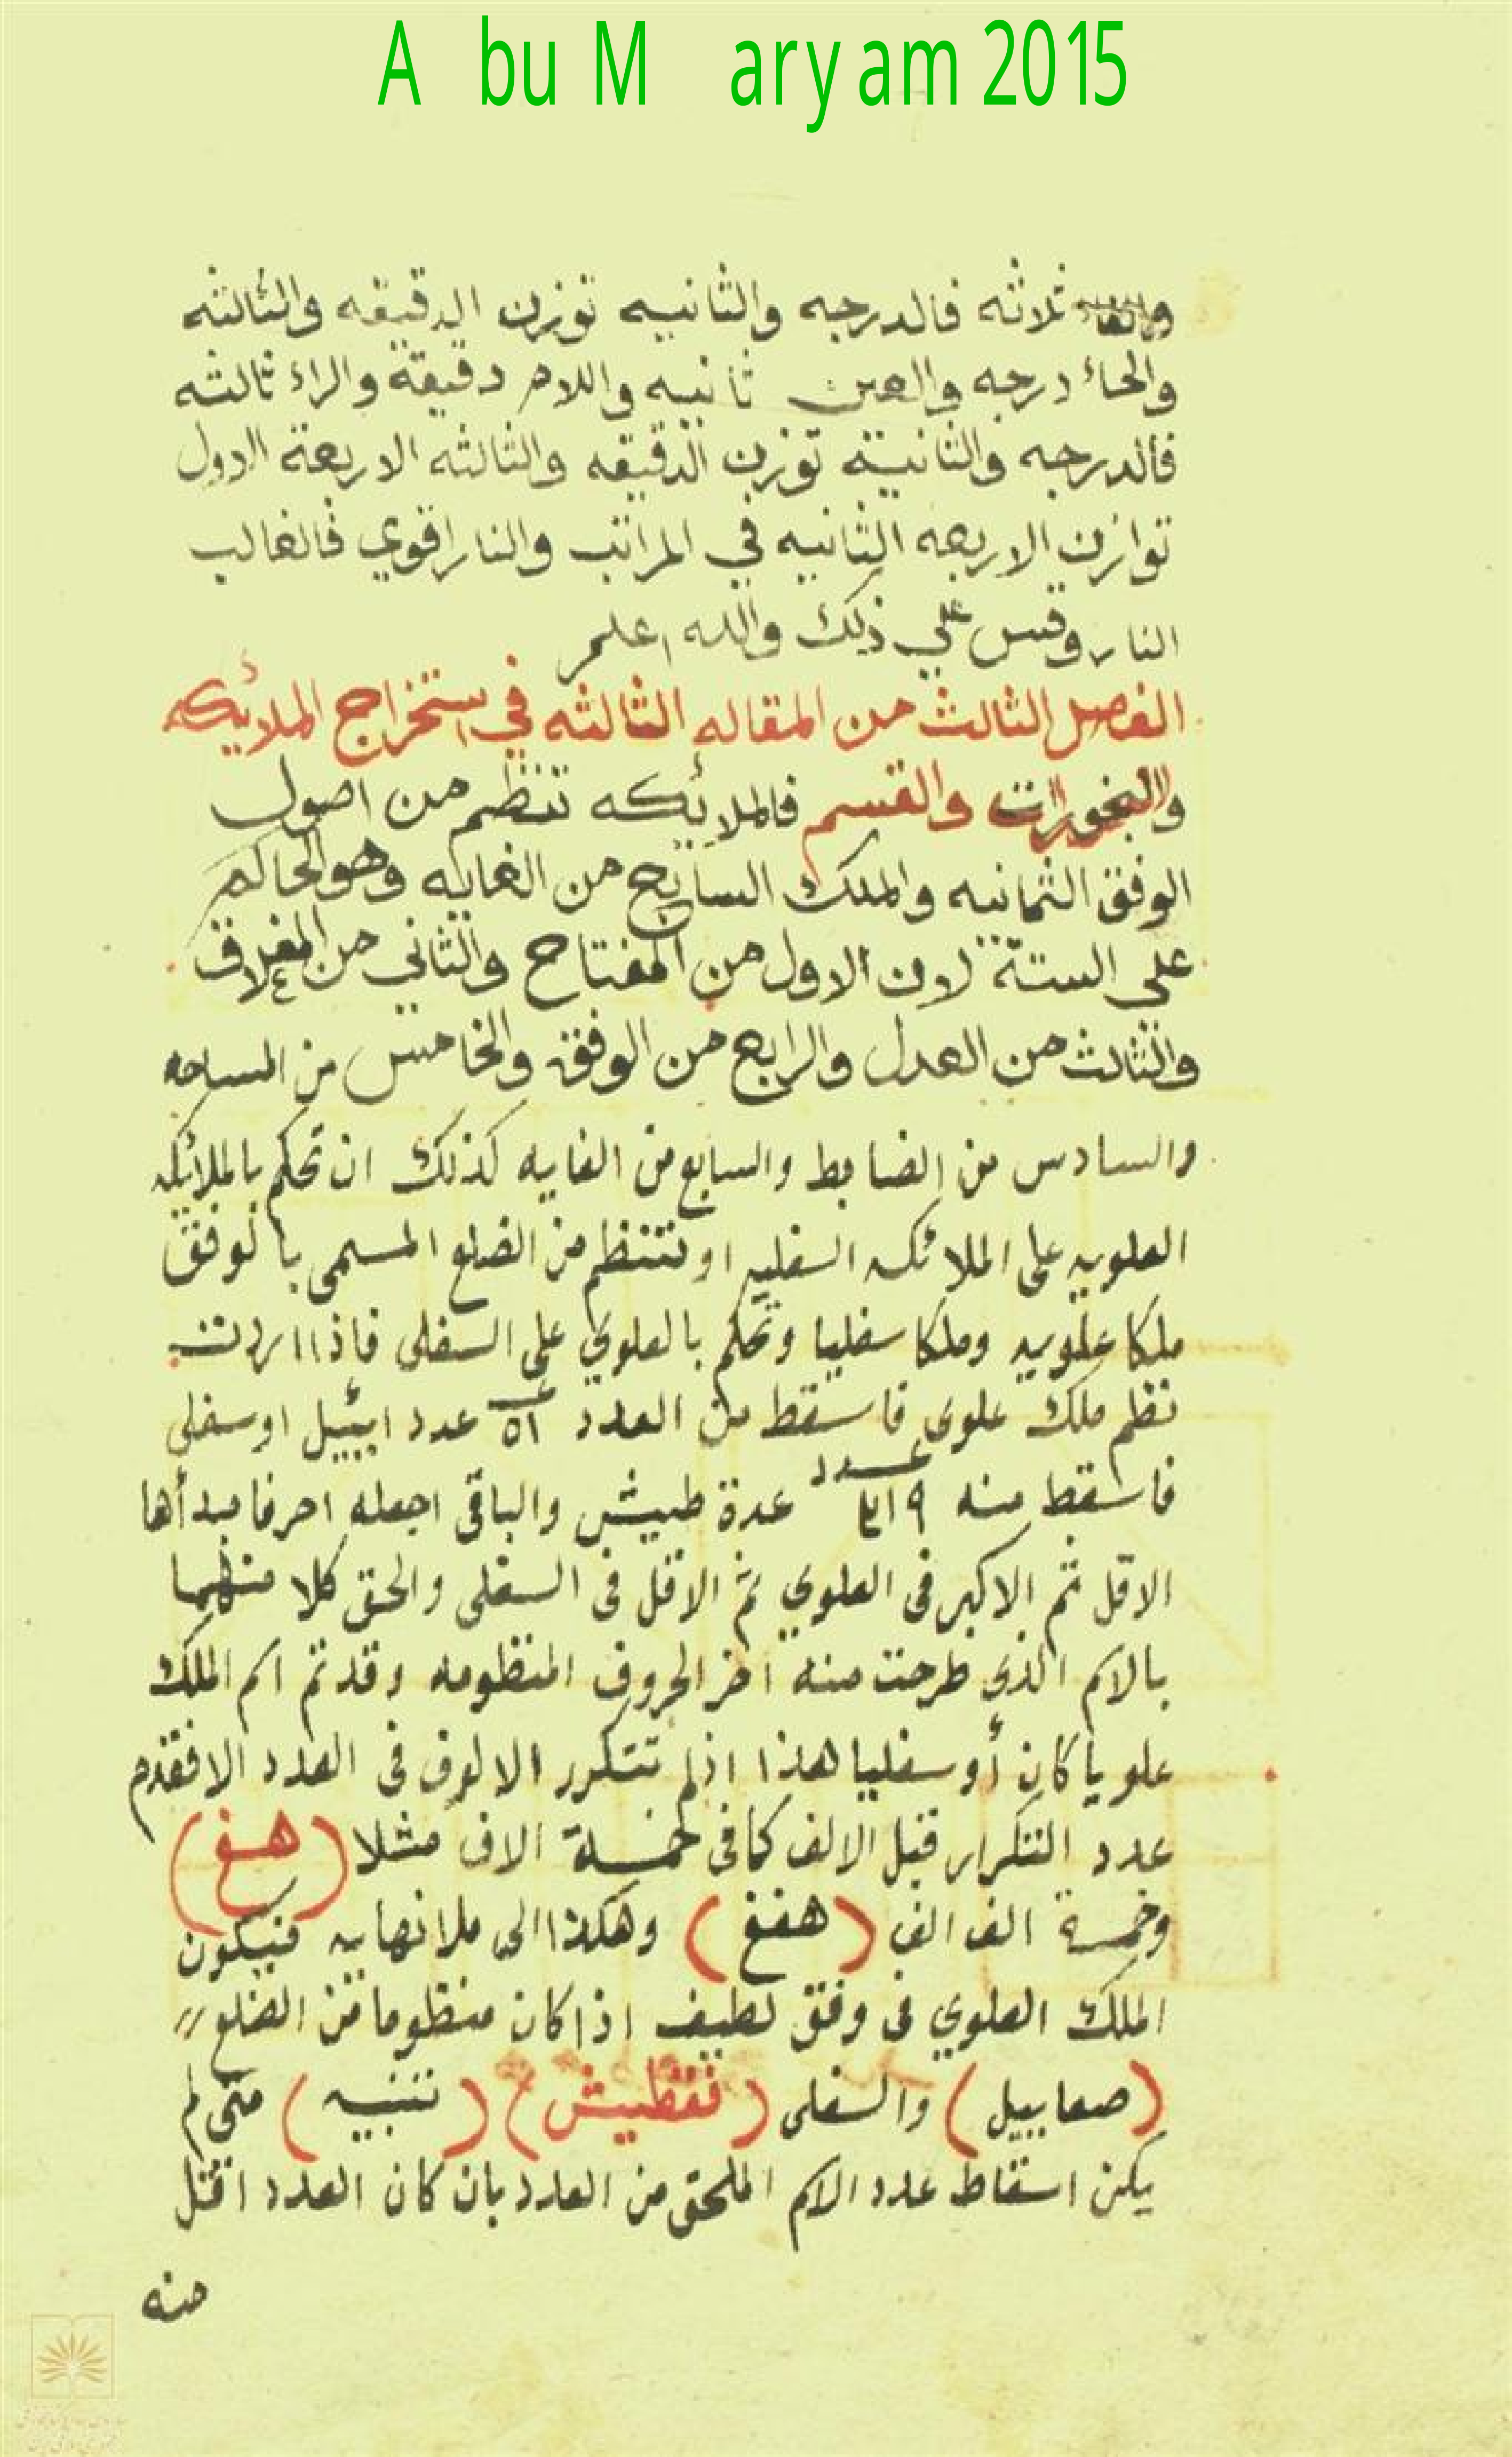 A bu M aryam 2015
ثلاثه فالدرجه والثانيه توزن الدقيقه والثالثه
والحاء درجه والعين ثانيه واللام دقيقة والراء ثالثه
فالدرجه والثانية توزن الدقيقه والثالثه الاربعة الاول
توازن الاربعه الثانيه في المراتب والنار اقوي فالغالب
النار وقس علي ذلك والله اعلم
الفصل الثالث من المقاله الثالثه في استخراج الملائيكه
والبخورات والقسم فالملائيكه تنظم من اصول
الوفق الثمانيه والملك السابع من الغايه وهو الحاكم
علي الستة لان الاول من المفتاح والثاني من المغلاق
والثالث من العدل والرابع من الوفق والخامس من المساحه
والسادس من الضابط والسابع من الغايه كذلك ان تحكم بالملائيكه
العلويه على الملائكه السفليه او تنتظم من الضلع المسمى بالوفق
ملكا علويه وملكا سفليا وتحكم بالعلوي على السفلى فاذا اردت
نظم ملك علوى فاسقط من العدد ٥١ عدد ائييل او سفلي
فاسقط منه ٣١٩ عدد عدة طيش والباقى اجعله احرفا مبدأها
الاقل ثم الاكبر فى العلوي ثم الاقل فى السفلى والحق كلا منهما
بالاسم الذى طرحت منه اخر الحروف المنظومه وقد تم اسم الملك
علويا كان أو سفليا هذا اذا لم تتكرر الالوف فى العدد الا فقدم
عدد التكرار قبل الالف كما فى خمسة الاف مثلا (هغ)
وخمسة الف الف (هغغ) وهكذا الى ملا نهايه فيكون
الملك العلوي فى وفق لطيف اذا كان منظوما من الضلع
(صعاييل) والسفلى (ثقطيش) (تنبيه) متى لم
يكن اسقاط عدد الاسم الملحق من العدد بان كان العدد اقل
منه